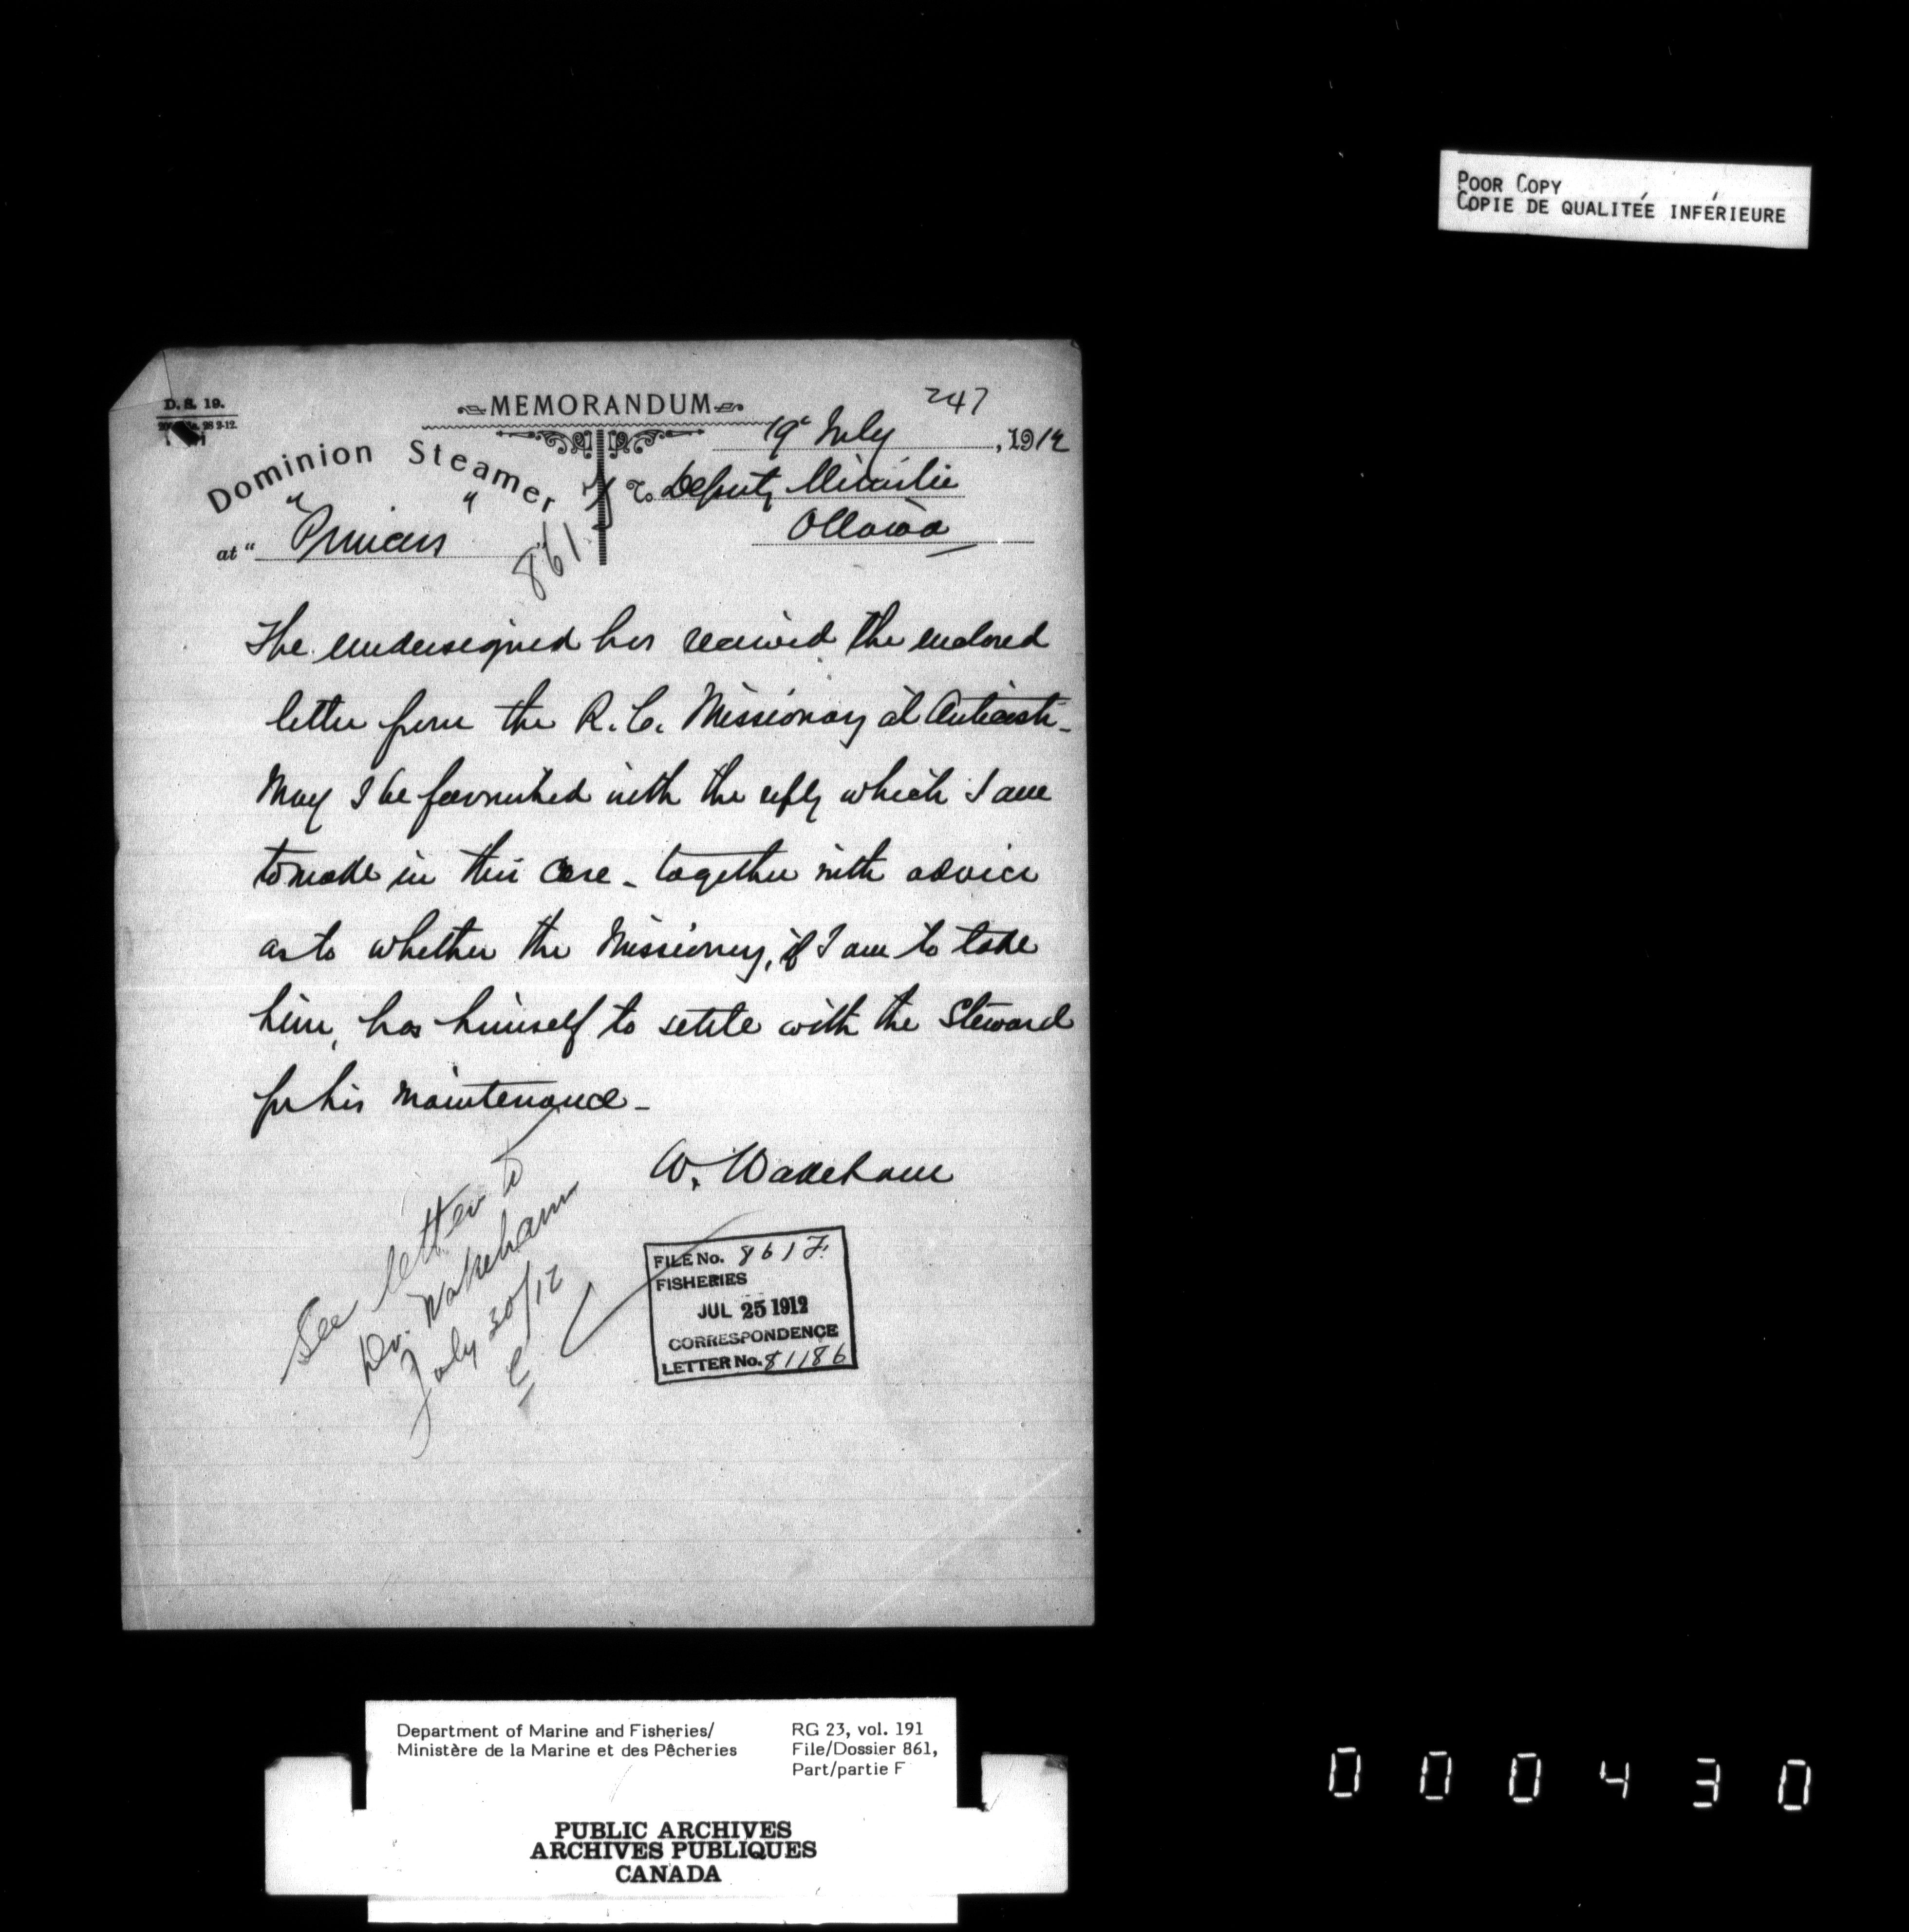 POOR COPY
COPIE DE QUALITÉE INFÉRIEURE
247
D. S. 19.
28 2-12.
MEMORANDUM
19 July, 1912
Dominion Steamer
at " "Princess" "
To Deputy Minister
Ottawa
861
The undersigned has received the enclosed
letter from the R. C. Missionary at Anticosti -
May I be favoured with the reply which I am
to make in this case - together with advice
as to whether the Missionary, if I am to take
him, has himself to settle with the Steward
for his maintenance -
W. Wakeham
See letter to
Dr. Wakeham
July 30/12
FILE No. 861 F.
FISHERIES
JUL 25 1912
CORRESPONDENCE
LETTER No. 81186
Department of Marine and Fisheries/
Ministère de la Marine et des Pêcheries
RG 23, vol. 191
File/Dossier 861,
Part/partie F
PUBLIC ARCHIVES
ARCHIVES PUBLIQUES
CANADA
000430